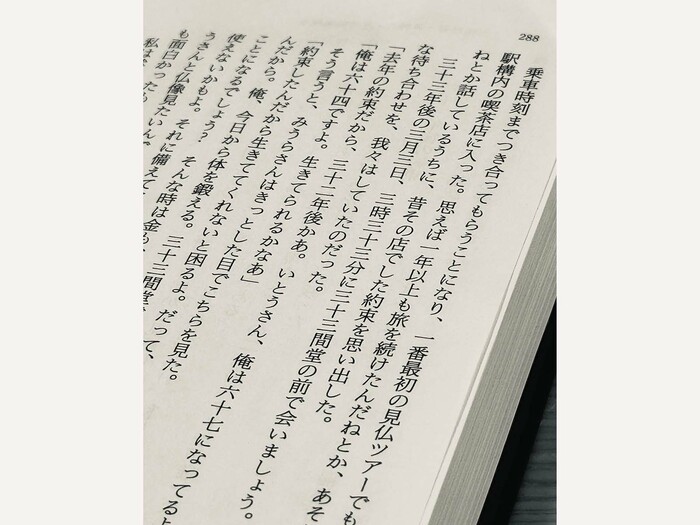 288
乗車時刻までつき合ってもらうことになり、一番最初の見仏ツアーでも
駅構内の喫茶店に入った。思えば一年以上も旅を続けたんだねとか、あそ
ねとか話しているうちに、昔その店でした約束を思い出した。
三十三年後の三月三日、三時三十三分に三十三間堂の前で会いましょう。
な待ち合わせを、我々はしていたのだった。
「去年の約束だから、三十二年後かあ。いとうさん、俺は六十七になってるよ
「俺は六十四ですよ。生きてられるかなあ」
そう言うと、みうらさんはきっとした目でこちらを見た。
「約束したんだから生きててくれないと困るよ。だって、
んだから。俺、今日から体を鍛える。三十三間堂
ことになるでしょう?そんな時は金
使えないかもよ。それに備えて
うさんと仏像見たいんで
も面白かった